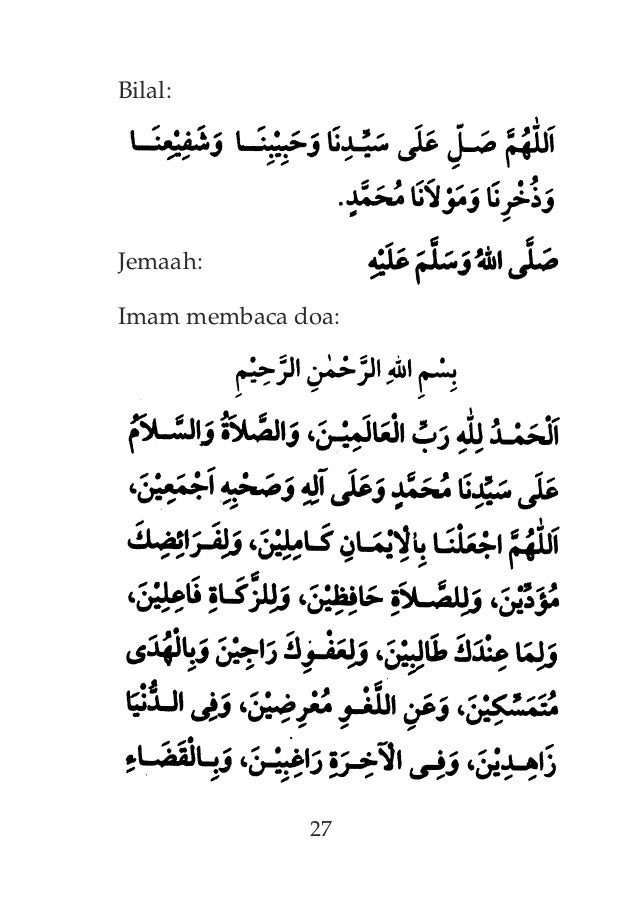 Bilal:
اَللّٰهُمَّ صَـلِّ عَلَى سَيِّـدِنَا وَحَبِيْبِنَـــا وَشَفِيْعِنَـــا
وَذُخْرِنَا وَمَوْلاَنَا مُحَمَّدٍ.
Jemaah: صَلَّى اللهُ وَسَلَّمَ عَلَيْهِ
Imam membaca doa:
بِسْمِ اللهِ الرَّحْمٰنِ الرَّحِيْمِ
اَلْحَمْـدُ لِلّٰهِ رَبِّ الْعَالَمِيْـنَ، وَالصَّلاَةُ وَالسَّـلاَمُ
عَلَى سَيِّدِنَا مُحَمَّدٍ وَعَلَى آلِهِ وَصَحْبِهِ اَجْمَعِيْنَ،
اَللّٰهُمَّ اجْعَلْنَـا بِاْلاِيْمَـانِ كَـامِلِيْنَ، وَلِفَـرَائِضِكَ
مُؤَدِّيْنَ، وَلِلصَّـلاَةِ حَافِظِيْنَ، وَلِلزَّكَـاةِ فَاعِلِيْنَ،
وَلِمَا عِنْدَكَ طَالِبِيْنَ، وَلِعَفْـوِكَ رَاجِيْنَ وَبِالْهُدَى
مُتَمَسِّكِيْنَ، وَعَنِ اللَّغْـوِ مُعْرِضِيْنَ، وَفِى الـدُّنْيَا
زَاهِـدِيْنَ، وَفِـى اْلآخِـرَةِ رَاغِبِيْـنَ، وَبِـالْقَضَـاءِ
27